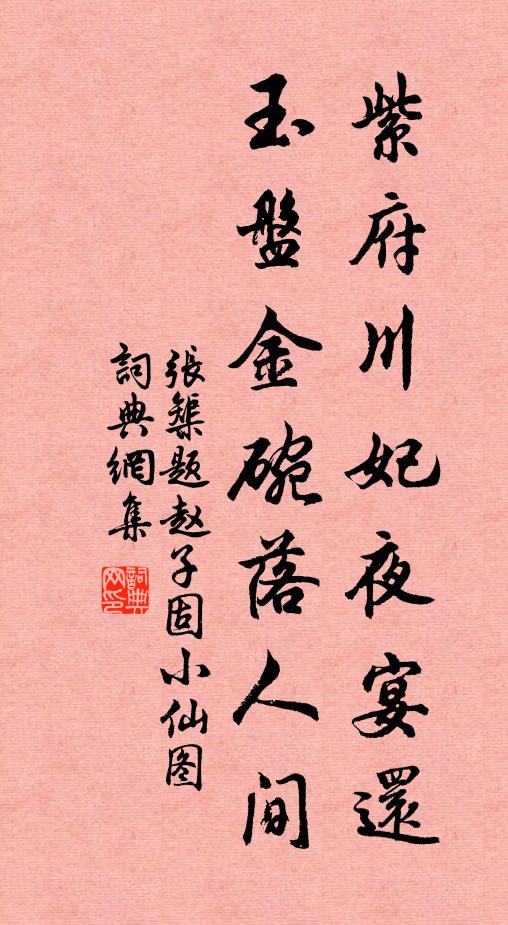 紫府川妃夜宴還
玉盤金碗落人间
張榘题赵子固小仙图
詞典網集
詞典网印